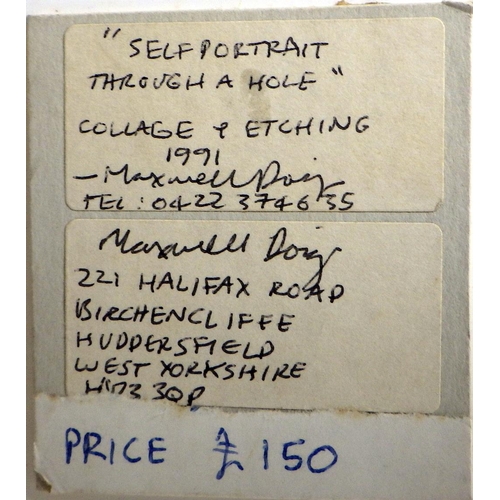 "SELF PORTRAIT
THROUGH A HOLE"
COLLAGE & ETCHING
1991
— Maxwell Doig
TEL: 0422 374635
Maxwell Doig
221 HALIFAX ROAD
BIRCHENCLIFFE
HUDDERSFIELD
WEST YORKSHIRE
HD3 3QP
PRICE £150